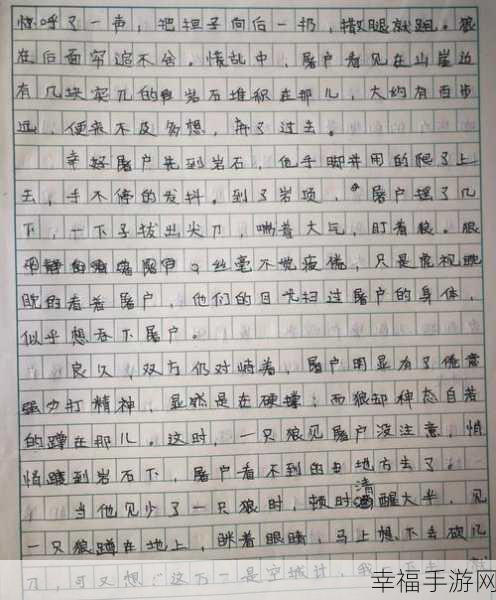 惊呼了一声，把担子向后一扔，撒腿就跑。狼
在后面穷追不舍。慌乱中，屠户看见在山崖边
有几块突兀的岩石堆积在那儿，大约有百步
远，便来不及多想，奔了过去。
幸好屠户先到岩石，他手脚并用的爬了上
去，手不停的发抖。到了岩顶，屠户摸了几
下，一下子拔出尖刀，喘着大气，盯着狼。狼
丝毫不觉疲倦，只是虎视眈
眈的看着屠户，他们的目光扫过屠户的身体，
似乎想吞下屠户。
良久，双方仍对峙着，屠户明显有了倦意
强力打精神，显然是在硬撑；而狼却神态自若
的蹲在那儿。这时，一只狼见屠户没注意，悄
悄蹭到岩石下，屠户看不到的地方去了
当他见少了一只狼时，顿时清醒大半，见
一只狼蹲在地上，眯着眼睛，马上想下去砍几
刀，可又想：“这万一是空城计，我
幸福手游网
xfsyw.com